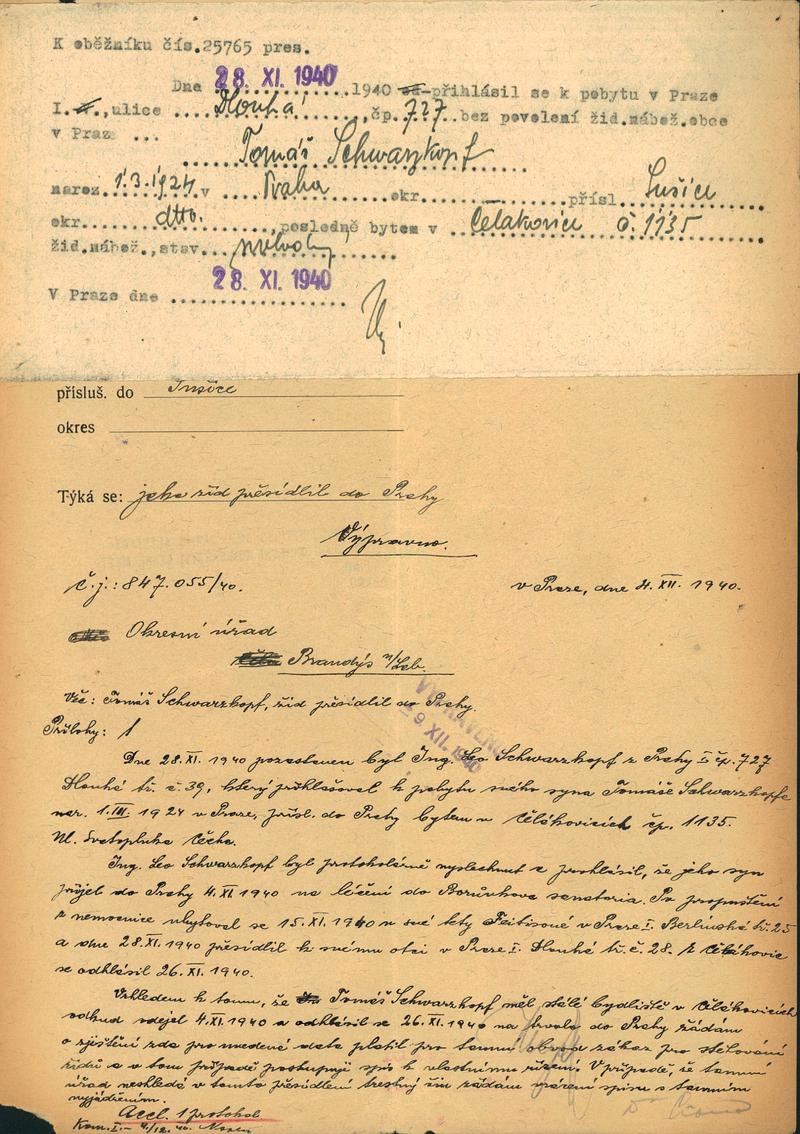 K oběžníku čís.25765 pres.
Dne 28. XI. 1940 1940 přihlásil se k pobytu v Praze
I. ,ulice Dlouhá čp. 727 bez povolení žid.nábož.obce
v Praz ...
Tomáš Schwarzkopf
naroz 1.3.1924 v Praha okr. přísl Sušice
okr. dtto. ,posledně bytem v Čelakovice č. 1135
žid.nábož.,stav svobodný
V Praze dne 28. XI. 1940
přísluš. do Sušice
okres
Týká se: jako žid přesídlil do Prahy
Výpravna.
Č.j.: 847.055/40. v Praze, dne 4. XII. 1940.
Okresní úřad
Brandýs n/Lab.
Věc: Tomáš Schwarzkopf, žid přesídlil do Prahy.
Přílohy: 1
VYPRAVENO
9. XII. 1940
Dne 28. XI. 1940 pozastaven byl Ing. Leo Schwarzkopf z Prahy I čp. 727
Dlouhá tř. č. 39, který přihlašoval k pobytu svého syna Tomáše Schwarzkopfa
nar. 1. III. 1924 v Praze, přísl. do Prahy bytem v Čelákovicích čp. 1135.
Ul. Svatopluka Čecha.
Ing. Leo Schwarzkopf byl protokolárně vyslechnut a prohlásil, že jeho syn
přijel do Prahy 4. XI. 1940 na léčení do Borůvkova sanatoria. Po propuštění
z nemocnice ubytoval se 15. XI. 1940 u své tety v Praze I. Berlínská tř. 25
a dne 28. XI. 1940 přesídlil k svému otci v Praze I. Dlouhá tř. č. 28. Z Čelákovic
se odhlásil 26. XI. 1940.
Vzhledem k tomu, že Tomáš Schwarzkopf měl stálé bydliště v Čelákovicích
odkud odejel 4. XI. 1940 a odhlásil se 26. XI. 1940 na trvalo do Prahy žádám
o zjištění zda pro uvedené data platil pro tamní obvod zákaz pro stěhování
židů a v tom případě postupuji spis k vlastnímu řízení. V případě, že tamní
úřad neshledá v tomto přesídlení trestný čin žádám vrácení spisu s tamním
vyjádřením.
Accl. 1 protokol